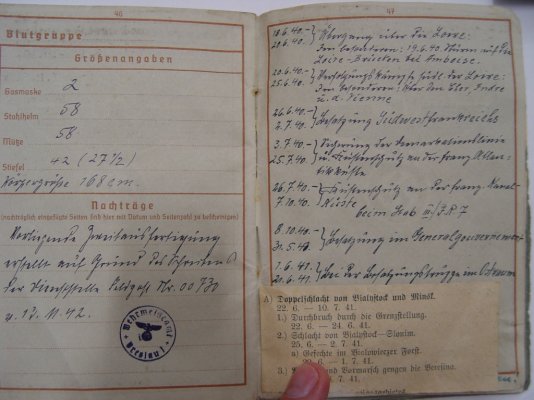 46
Blutgruppe
Größenangaben
Gasmaske 2
Stahlhelm 58
Mütze 58
Stiefel 42 (27 1/2)
Körpergröße 168 cm.
Nachträge
(nachträglich eingefügte Seiten sind hier mit Datum und Seitenzahl zu bescheinigen)
Vorliegende Zweitausfertigung
erstellt auf Grund des Schreibens
der Dienststelle Feldpost Nr. 00730
v. 17. 11. 42.
Wehrmeldeamt
Breslau 1
47
18.6.40.-
20.6.40.
Übergang über die Loire:
Im besonderen: 19.6.40 Sturm auf die
Loire-Brücken bei Amboise.
20.6.40.-
25.6.40.
Verfolgungskämpfe südl. der Loire:
Im besonderen: über den Cher, Indre
u. d. Vienne
26.6.40.-
2.7.40.
Besatzung Südwestfrankreichs
3.7.40.-
25.7.40.
Sicherung der Demarkationslinie
u. Küstenschutz an der franz. Atlan-
tikküste
26.7.40.-
7.10.40.
Küstenschutz an der franz. Kanal-
Küste
beim Stab III/J.R.7
8.10.40.-
31.5.40.
Besatzung im Generalgouvernement
1.6.41.
21.6.41.
bei der Besatzungstruppe im
A) Doppelschlacht von Bialystock und Minsk.
22. 6. — 10. 7. 41.
1.) Durchbruch durch die Grenzstellung.
22. 6. — 24. 6. 41.
2.) Schlacht von Bialystock—Slonim.
25. 6. — 2. 7. 41.
a) Gefechte im Bealowiezer Forst.
6. — 1. 7. 41.
3.) und Vormarsch gegen die Beresina.
7. 41.